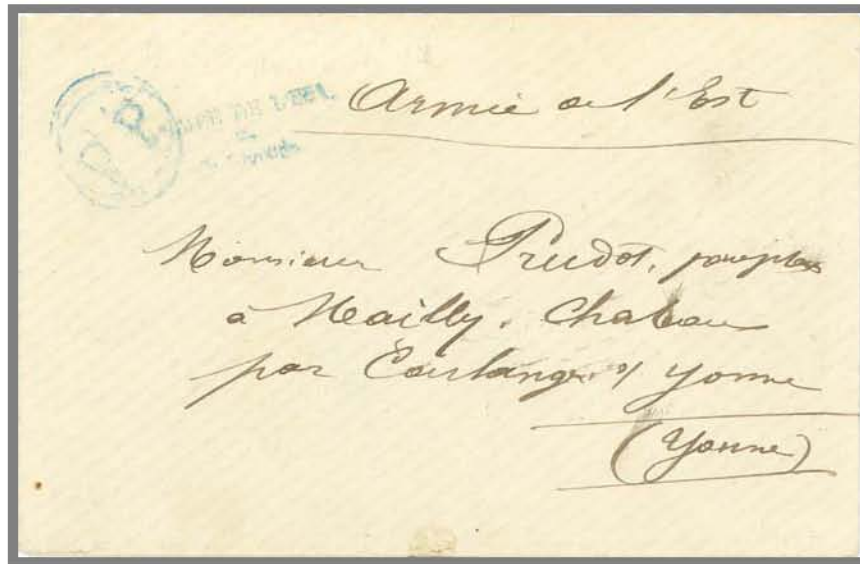 P.P.
DE L'EST
Armée de l'Est
Monsieur Prudot,
à Mailly. Chateau
par Coulanges s/ Yonne
(Yonne)